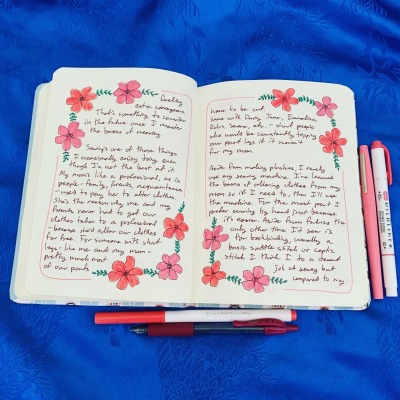 Feeling
extra courageous
That's something to consider
in the future once I master
the basics of weaving.
Sewing's one of those things
I occasionally enjoy doing even
though I'm not the best at it.
My mom's like a professional, as in
people - family, friends,
- used to pay her to alter clothes.
She's the reason why me and my
friends never had to get our
clothes taken to a professional
- because she'd alter our clothes
for free. For someone with short
legs - like me and my mom -
pretty much most
of our pants
have to be cut.
Same with Daisy, Jane,
- short people
who would be constantly ripping
our pant legs if it weren't
for my mom.
Aside from making plushies, I rarely
use my sewing machine. I've learned
the basics of altering clothes from my
mom so if I need to, then I'll use
the machine. For the most part I
prefer sewing by hand just because
it's easier. Aside from fabric the
only other time I'd sew is
for bookbinding, usually a
basic saddle stitch or coptic
stitch. I think I do a decent
job at sewing but
compared to my